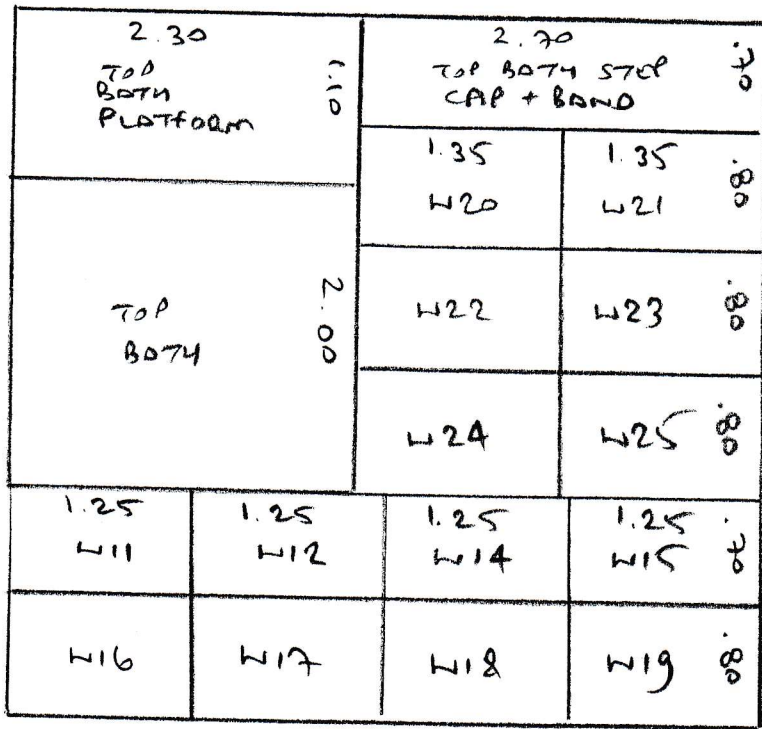 2.30
TOP
BATH
PLATFORM
1.10
2.70
TOP BATH STEP
CAP + BAND
.70
1.35
W20
1.35
W21
.80
TOP
BATH
2.00
W22
W23
.80
W24
W25
.80
1.25
W11
1.25
W12
1.25
W14
1.25
W15
.70
W16
W17
W18
W19
.80